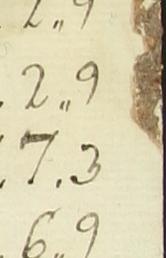 2„9
. 2„9
. 7.3
. 6„9